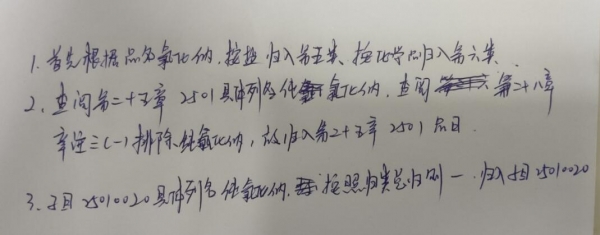 1. 首先根据品名氯化钠,按盐归入第五类、按化学品归入第六类.
2. 查阅第二十五章 2501 具体列名纯氯化钠,查阅 第二十八章
章注三(一)排除纯氯化钠,故归入第二十五章 2501 品目.
3. 子目 25010020 具体列名纯氯化钠. 按照归类总归则一. 归入子目 25010020